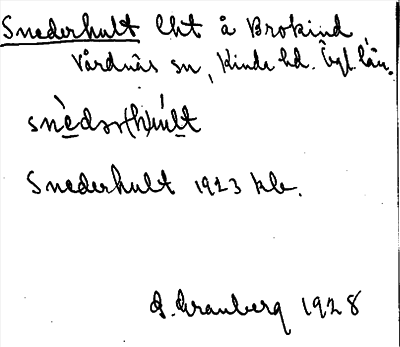 Snederhult lht å Brokind,
Vårdnäs sn, Kinda hd. Ögl. län.
snèdər(h)últ
Snederhult 1923 kle.
G. Granberg 1928